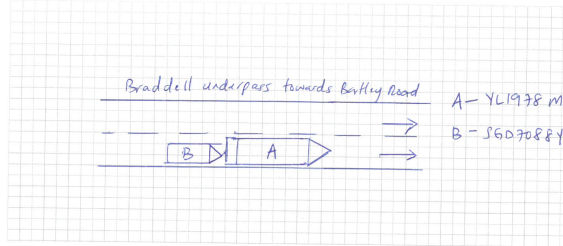 Braddell underpass towards Bartley Road
A - YL1978M
B - SGD7088Y
B
A